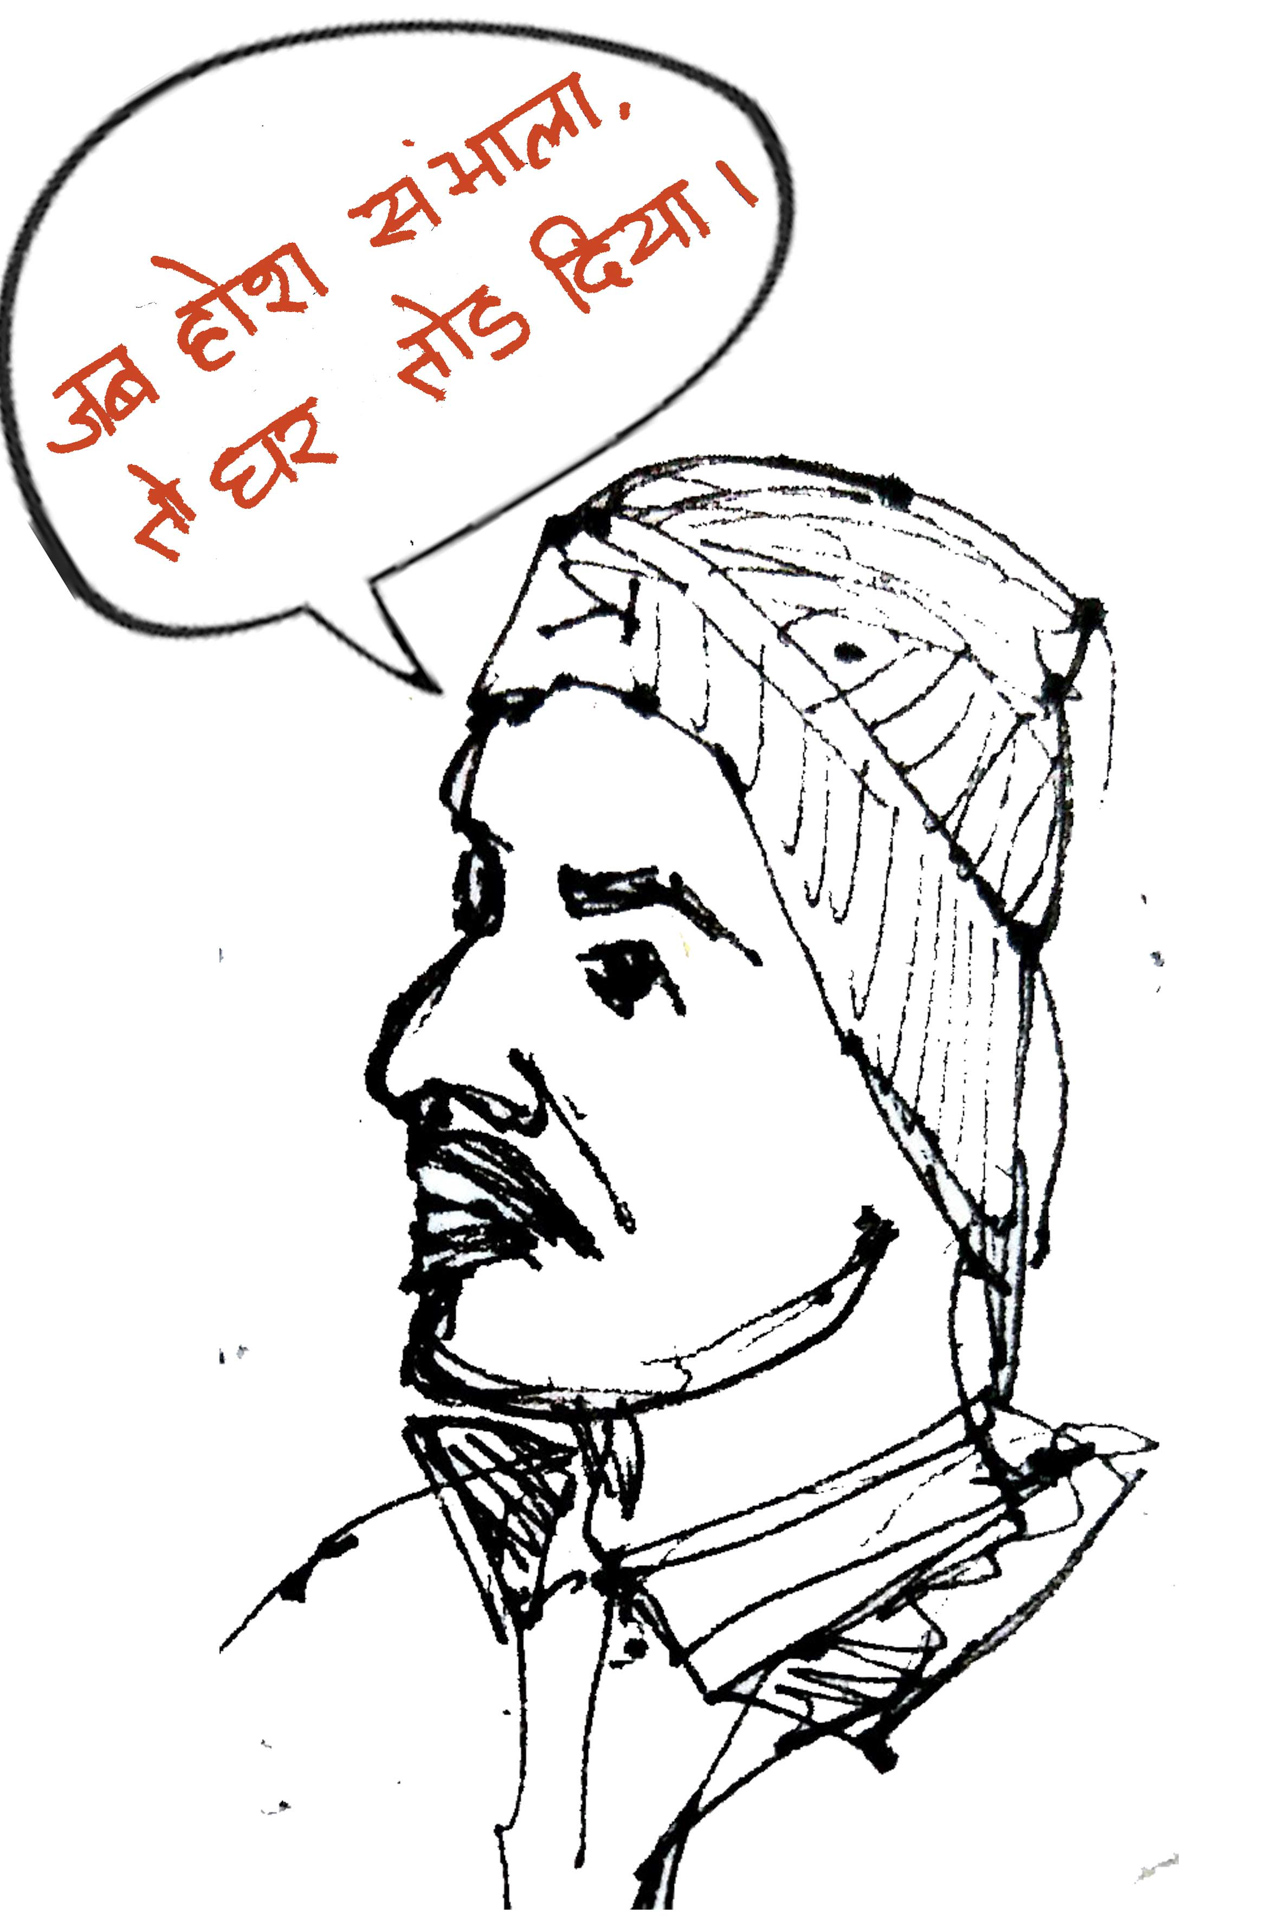 जब होश संभाला.
तो घर तोड दिया।